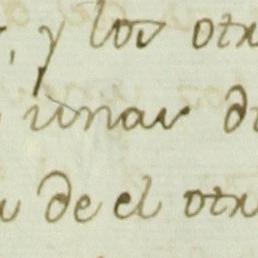 y los otr
unas d
de el otr